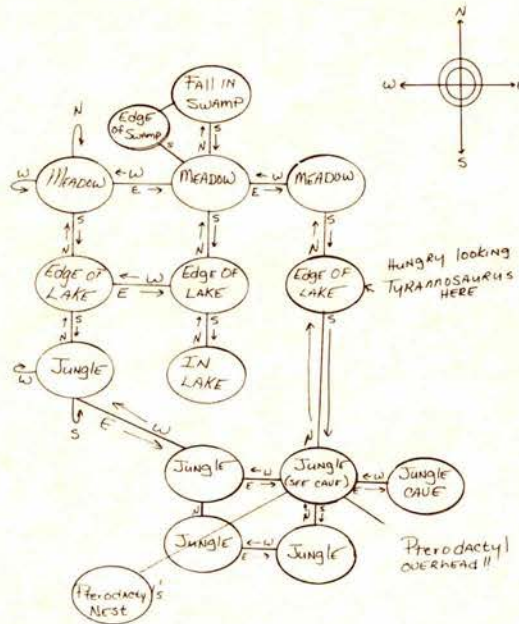 N
W
S
FALL IN
SWAMP
EDGE
OF SWAMP
S
N
S
N
W
MEADOW
W
E
MEADOW
W
E
MEADOW
N
S
N
S
N
S
EDGE OF
LAKE
W
E
EDGE OF
LAKE
EDGE OF
LAKE
HUNGRY LOOKING
TYRANNOSAURUS
HERE
N
S
N
S
S
JUNGLE
W
S
IN
LAKE
W
E
N
JUNGLE
W
E
JUNGLE
(SEE CAVE)
W
E
JUNGLE
CAVE
N
N
S
JUNGLE
W
E
JUNGLE
PTERODACTYL
OVERHEAD!!
PTERODACTYL'S
NEST